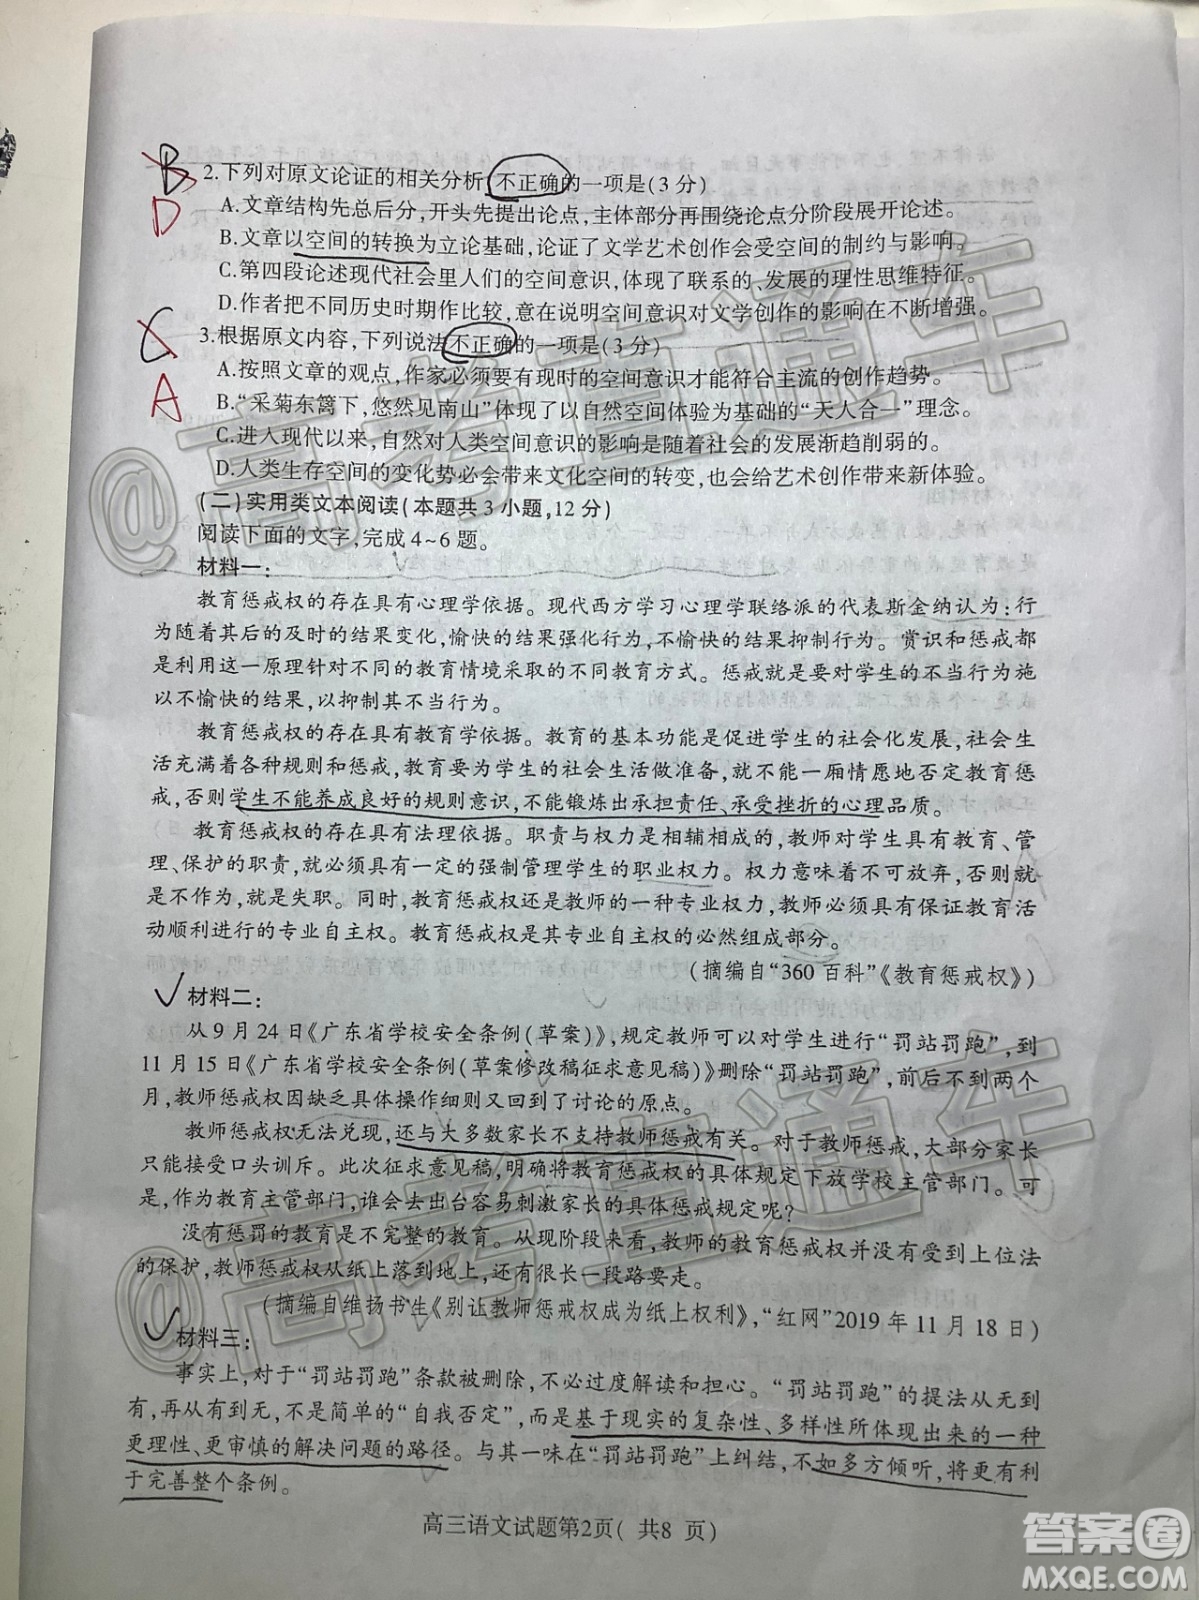 B
D
2.下列对原文论证的相关分析,不正确的一项是(3分)
A.文章结构先总后分,开头先提出论点,主体部分再围绕论点分阶段展开论述。
B.文章以空间的转换为立论基础,论证了文学艺术创作会受空间的制约与影响。
C.第四段论述现代社会里人们的空间意识,体现了联系的、发展的理性思维特征。
D.作者把不同历史时期作比较,意在说明空间意识对文学创作的影响在不断增强。
C
A
3.根据原文内容,下列说法不正确的一项是(3分)
A.按照文章的观点,作家必须要有现时的空间意识才能符合主流的创作趋势。
B.“采菊东篱下,悠然见南山”体现了以自然空间体验为基础的“天人合一”理念。
C.进入现代以来,自然对人类空间意识的影响是随着社会的发展渐趋削弱的。
D.人类生存空间的变化势必会带来文化空间的转变,也会给艺术创作带来新体验。
(二)实用类文本阅读(本题共3小题,12分)
阅读下面的文字,完成4~6题。
材料一:
教育惩戒权的存在具有心理学依据。现代西方学习心理学联络派的代表斯金纳认为:行
为随着其后的及时的结果变化,愉快的结果强化行为,不愉快的结果抑制行为。赏识和惩戒都
是利用这一原理针对不同的教育情境采取的不同教育方式。惩戒就是要对学生的不当行为施
以不愉快的结果,以抑制其不当行为。
教育惩戒权的存在具有教育学依据。教育的基本功能是促进学生的社会化发展,社会生
活充满着各种规则和惩戒,教育要为学生的社会生活做准备,就不能一厢情愿地否定教育惩
戒,否则学生不能养成良好的规则意识,不能锻炼出承担责任、承受挫折的心理品质。
教育惩戒权的存在具有法理依据。职责与权力是相辅相成的,教师对学生具有教育、管
理、保护的职责,就必须具有一定的强制管理学生的职业权力。权力意味着不可放弃,否则就
是不作为,就是失职。同时,教育惩戒权还是教师的一种专业权力,教师必须具有保证教育活
动顺利进行的专业自主权。教育惩戒权是其专业自主权的必然组成部分。
(摘编自“360百科”《教育惩戒权》)
材料二:
从9月24日《广东省学校安全条例(草案)》,规定教师可以对学生进行“罚站罚跑”,到
11月15日《广东省学校安全条例(草案修改稿征求意见稿)》删除“罚站罚跑”,前后不到两个
月,教师惩戒权因缺乏具体操作细则又回到了讨论的原点。
教师惩戒权无法兑现,还与大多数家长不支持教师惩戒有关。对于教师惩戒,大部分家长
只能接受口头训斥。此次征求意见稿,明确将教育惩戒权的具体规定下放学校主管部门。可
是,作为教育主管部门,谁会去出台容易刺激家长的具体惩戒规定呢?
没有惩罚的教育是不完整的教育。从现阶段来看,教师的教育惩戒权并没有受到上位法
的保护,教师惩戒权从纸上落到地上,还有很长一段路要走。
(摘编自维扬书生《别让教师惩戒权成为纸上权利》,“红网”2019年11月18日)
材料三:
事实上,对于“罚站罚跑”条款被删除,不必过度解读和担心。“罚站罚跑”的提法从无到
有,再从有到无,不是简单的“自我否定”,而是基于现实的复杂性、多样性所体现出来的一种
更理性、更审慎的解决问题的路径。与其一味在“罚站罚跑”上纠结,不如多方倾听,将更有利
于完善整个条例。
高三语文试题第2页( 共8 页)
@高考直通车
@高考直通车
答案圈
MXQE.COM